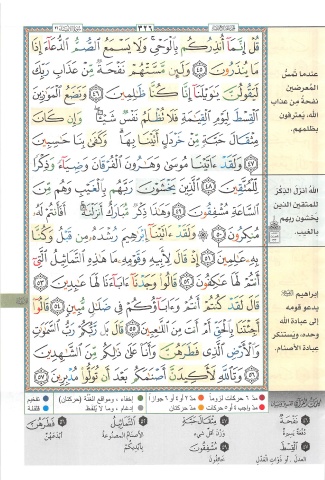 ٣٢٦
قُلْ إِنَّمَآ أُنذِرُكُم بِٱلْوَحْىِ وَلَا يَسْمَعُ ٱلصُّمُّ ٱلدُّعَآءَ إِذَا
مَا يُنذَرُونَ ٤٥ وَلَئِن مَّسَّتْهُمْ نَفْحَةٌ مِّنْ عَذَابِ رَبِّكَ
لَيَقُولُنَّ يَٰوَيْلَنَآ إِنَّا كُنَّا ظَٰلِمِينَ ٤٦ وَنَضَعُ ٱلْمَوَٰزِينَ
ٱلْقِسْطَ لِيَوْمِ ٱلْقِيَٰمَةِ فَلَا تُظْلَمُ نَفْسٌ شَيْـًٔا وَإِن كَانَ
مِثْقَالَ حَبَّةٍ مِّنْ خَرْدَلٍ أَتَيْنَا بِهَا وَكَفَىٰ بِنَا حَٰسِبِينَ
٤٧ وَلَقَدْ ءَاتَيْنَا مُوسَىٰ وَهَٰرُونَ ٱلْفُرْقَانَ وَضِيَآءً وَذِكْرًا
لِّلْمُتَّقِينَ ٤٨ ٱلَّذِينَ يَخْشَوْنَ رَبَّهُم بِٱلْغَيْبِ وَهُم مِّنَ
ٱلسَّاعَةِ مُشْفِقُونَ ٤٩ وَهَٰذَا ذِكْرٌ مُّبَارَكٌ أَنزَلْنَٰهُ أَفَأَنتُمْ لَهُۥ
مُنكِرُونَ ٥٠ وَلَقَدْ ءَاتَيْنَآ إِبْرَٰهِيمَ رُشْدَهُۥ مِن قَبْلُ وَكُنَّا
بِهِۦ عَٰلِمِينَ ٥١ إِذْ قَالَ لِأَبِيهِ وَقَوْمِهِۦ مَا هَٰذِهِ ٱلتَّمَاثِيلُ ٱلَّتِىٓ
أَنتُمْ لَهَا عَٰكِفُونَ ٥٢ قَالُوا۟ وَجَدْنَآ ءَابَآءَنَا لَهَا عَٰبِدِينَ ٥٣
قَالَ لَقَدْ كُنتُمْ أَنتُمْ وَءَابَآؤُكُمْ فِى ضَلَٰلٍ مُّبِينٍ ٥٤ قَالُوٓا۟
أَجِئْتَنَا بِٱلْحَقِّ أَمْ أَنتَ مِنَ ٱللَّٰعِبِينَ ٥٥ قَالَ بَل رَّبُّكُمْ رَبُّ ٱلسَّمَٰوَٰتِ
وَٱلْأَرْضِ ٱلَّذِى فَطَرَهُنَّ وَأَنَا۠ عَلَىٰ ذَٰلِكُم مِّنَ ٱلشَّٰهِدِينَ
٥٦ وَتَٱللَّهِ لَأَكِيدَنَّ أَصْنَٰمَكُم بَعْدَ أَن تُوَلُّوا۟ مُدْبِرِينَ ٥٧
عندما تَمَسُّ
المُعرضين
نفحةٌ مِن عذابِ
الله، يَعترفون
بظلمهم.
اللهُ أنزلَ الذِّكرَ
للمتقين الذين
يخشون ربهم
بالغيب.
إبراهيم
يدعو قومه
إلى عبادة الله
وحده، ويستنكر
عبادة الأصنام.
مدّ ٦ حركات لزوماً
مدّ ٢ أو ٤ أو ٦ جوازاً
إخفاء، ومواقع الغُنَّة (حركتان)
تفخيم
مدّ واجب ٤ أو ٥ حركات
مدّ حركتان
إدغام، وما لا يُلفظ
قلقلة
نَفْحَةٌ
دُفعةٌ يسيرةٌ
ٱلْقِسْطَ
العدلَ، أو ذوات العدل
مِثْقَالَ حَبَّةٍ
وزنَ أقلِّ شيء
مُشْفِقُونَ
خائفون
ٱلتَّمَاثِيلُ
الأصنامُ المصنوعةُ
بأيديكم
فَطَرَهُنَّ
أبدعهنّ